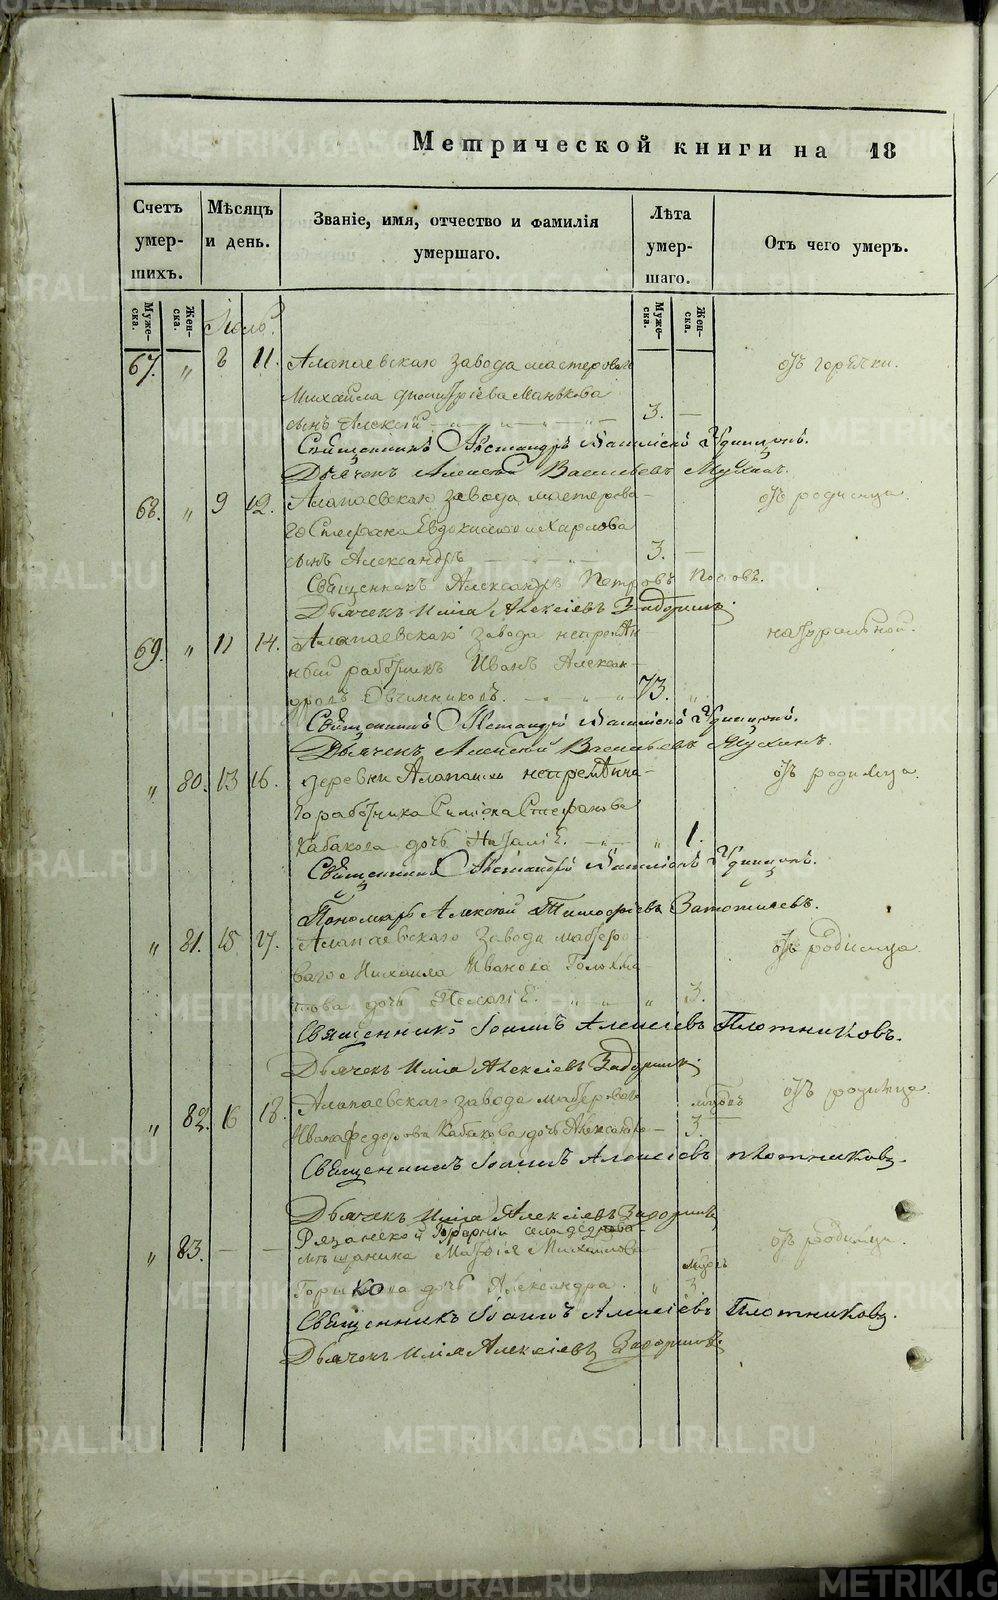 Метрической книги на 18
Счетъ умершихъ.
Мѣсяцъ и день.
Званіе, имя, отчество и фамилія умершаго.
Лѣта умершаго.
Отъ чего умеръ.
Мужеска.
Женска.
Мужеска.
Женска.
67. „ 8 11. Алапаевскаго завода мастероваго отъ горячки.
Михаила Димитріева Манькова
сынъ Алексій 3. —
Священникъ Александръ Удинцовъ.
Дьячекъ Алексѣй Васильевъ
68. „ 9 12. Алапаевскаго завода мастерова- отъ родимца.
го Стефана Евдокимова Харлова
сынъ Александръ 3. —
Священникъ Александръ Петровъ Поповъ.
Дьячекъ Илія Алексіевъ Задоринъ.
69. „ 11 14. Алапаевскаго завода непремѣн- натуральной.
ный работникъ Иванъ Алексан-
дровъ Овчинниковъ. 73. „
Священникъ Александръ Удинцовъ.
Дьячекъ Алексѣй Васильевъ
„ 80. 13 16. Деревни Алапаихи непремѣнна- отъ родимца.
го работника Симеона Стефанова
Кабакова дочь Наталія. „ 1.
Священникъ Александръ Удинцовъ.
Пономарь Алексій Тимофіевъ
„ 81. 15 17. Алапаевскаго завода мастеро- отъ родимца.
ваго Михаила Иванова
дочь Пелагія. „ 3.
Священникъ Іоаннъ Алексіевъ Плотниковъ.
Дьячекъ Илія Алексіевъ Задоринъ
„ 82. 16 18. Алапаевскаго завода мастероваго отъ родимца
Ивана Федорова Кабакова дочь Александра 3.
Священникъ Іоаннъ Алексіевъ Плотниковъ.
Дьячекъ Илія Алексіевъ Задоринъ
„ 83. — — Рязанской Губерніи отъ родимца.
мѣщанина Михаилова
дочь Александра. „ 3.
Священникъ Іоаннъ Алексіевъ Плотниковъ.
Дьячекъ Илія Алексіевъ Задоринъ.
METRIKI.GASO-URAL.RU